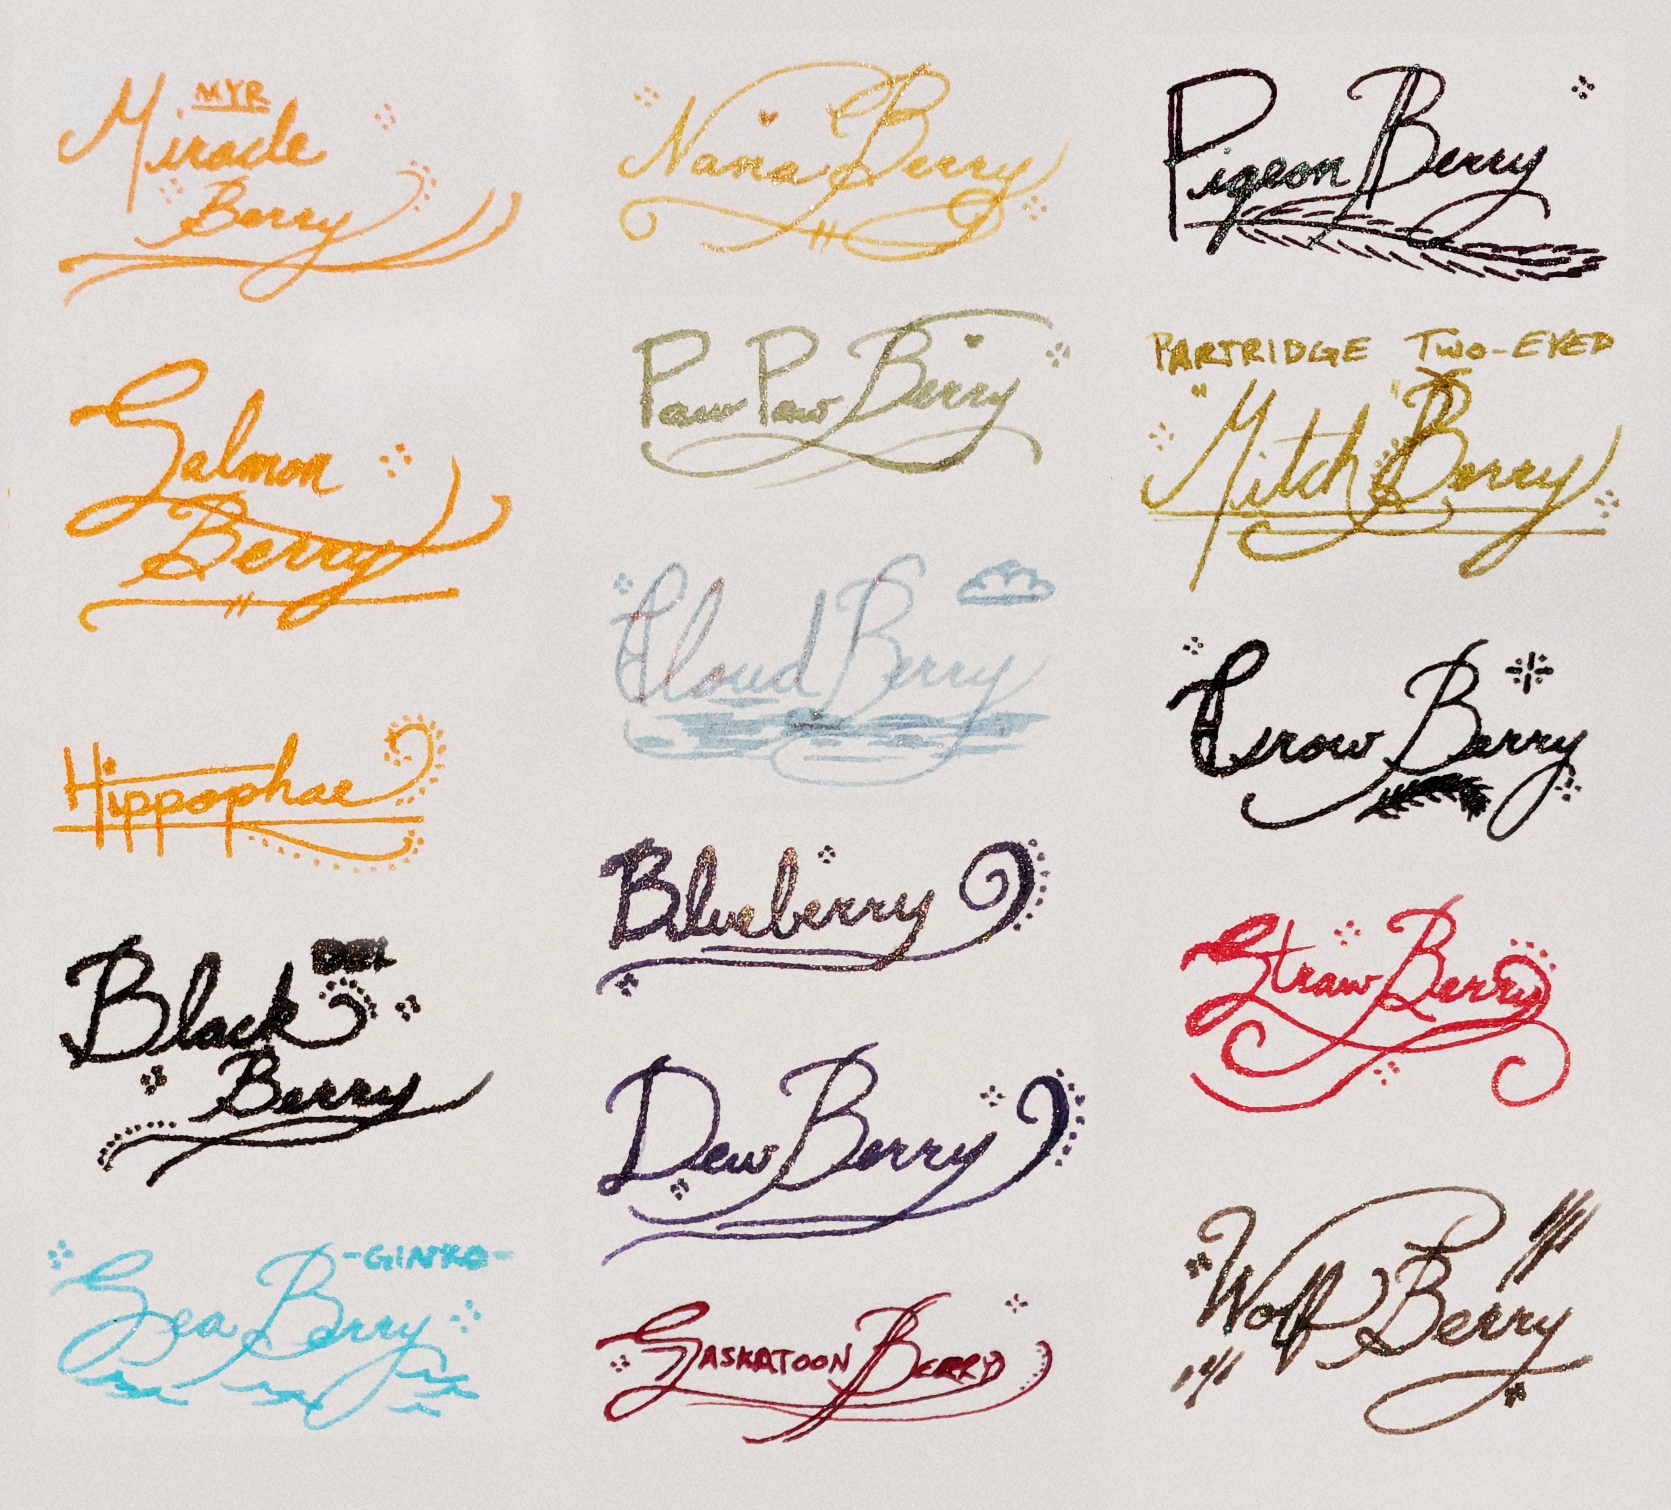 MYR
Miracle
Berry
Salmon
Berry
Hippophae
Black
Berry
-GINKO-
Sea Berry
Nana Berry
Paw Paw Berry
Cloud Berry
Blueberry
Dew Berry
SASKATOON BERRY
Pigeon Berry
PARTRIDGE TWO-EYED
"Mitch" Berry
Crow Berry
Straw Berry
Wolf Berry